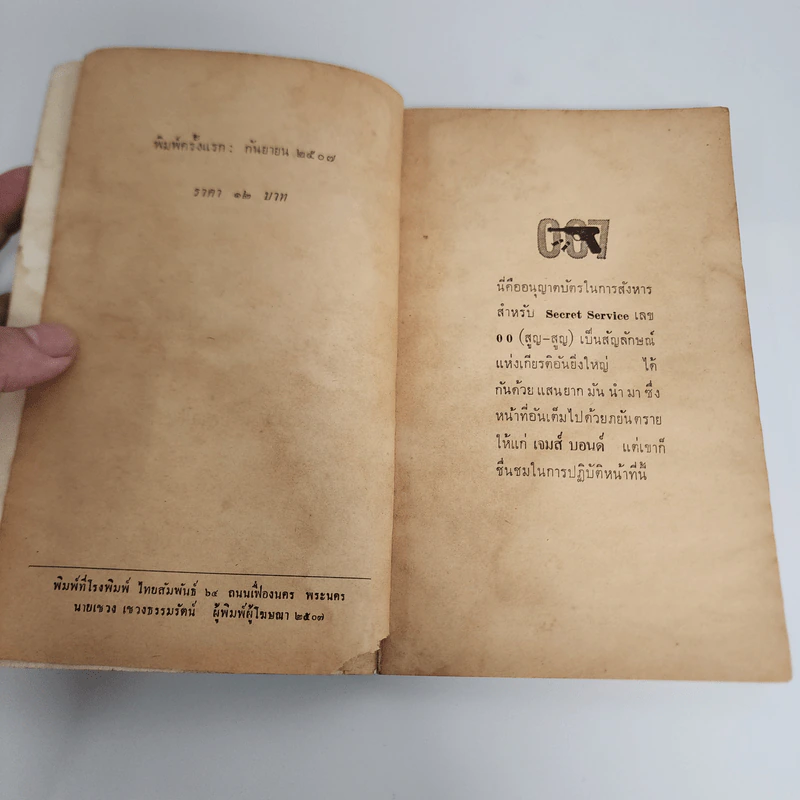 พิมพ์ครั้งแรก: กันยายน ๒๕๐๗
ราคา ๑๒ บาท
พิมพ์ที่โรงพิมพ์ ไทยสัมพันธ์ ๖๔ ถนนเฟื่องนคร พระนคร
นายเชวง เชวงธรรมรัตน์ ผู้พิมพ์ผู้โฆษณา ๒๕๐๗
007
นี่คืออนุญาตบัตรในการสังหาร
สำหรับ Secret Service เลข
0 0 (สูญ–สูญ) เป็นสัญลักษณ์
แห่งเกียรติอันยิ่งใหญ่ ได้
กันด้วย แสนยาก มัน นำ มา ซึ่ง
หน้าที่อันเต็มไปด้วยภยันตราย
ให้แก่ เจมส์ บอนด์ แต่เขาก็
ชื่นชมในการปฏิบัติหน้าที่นี้